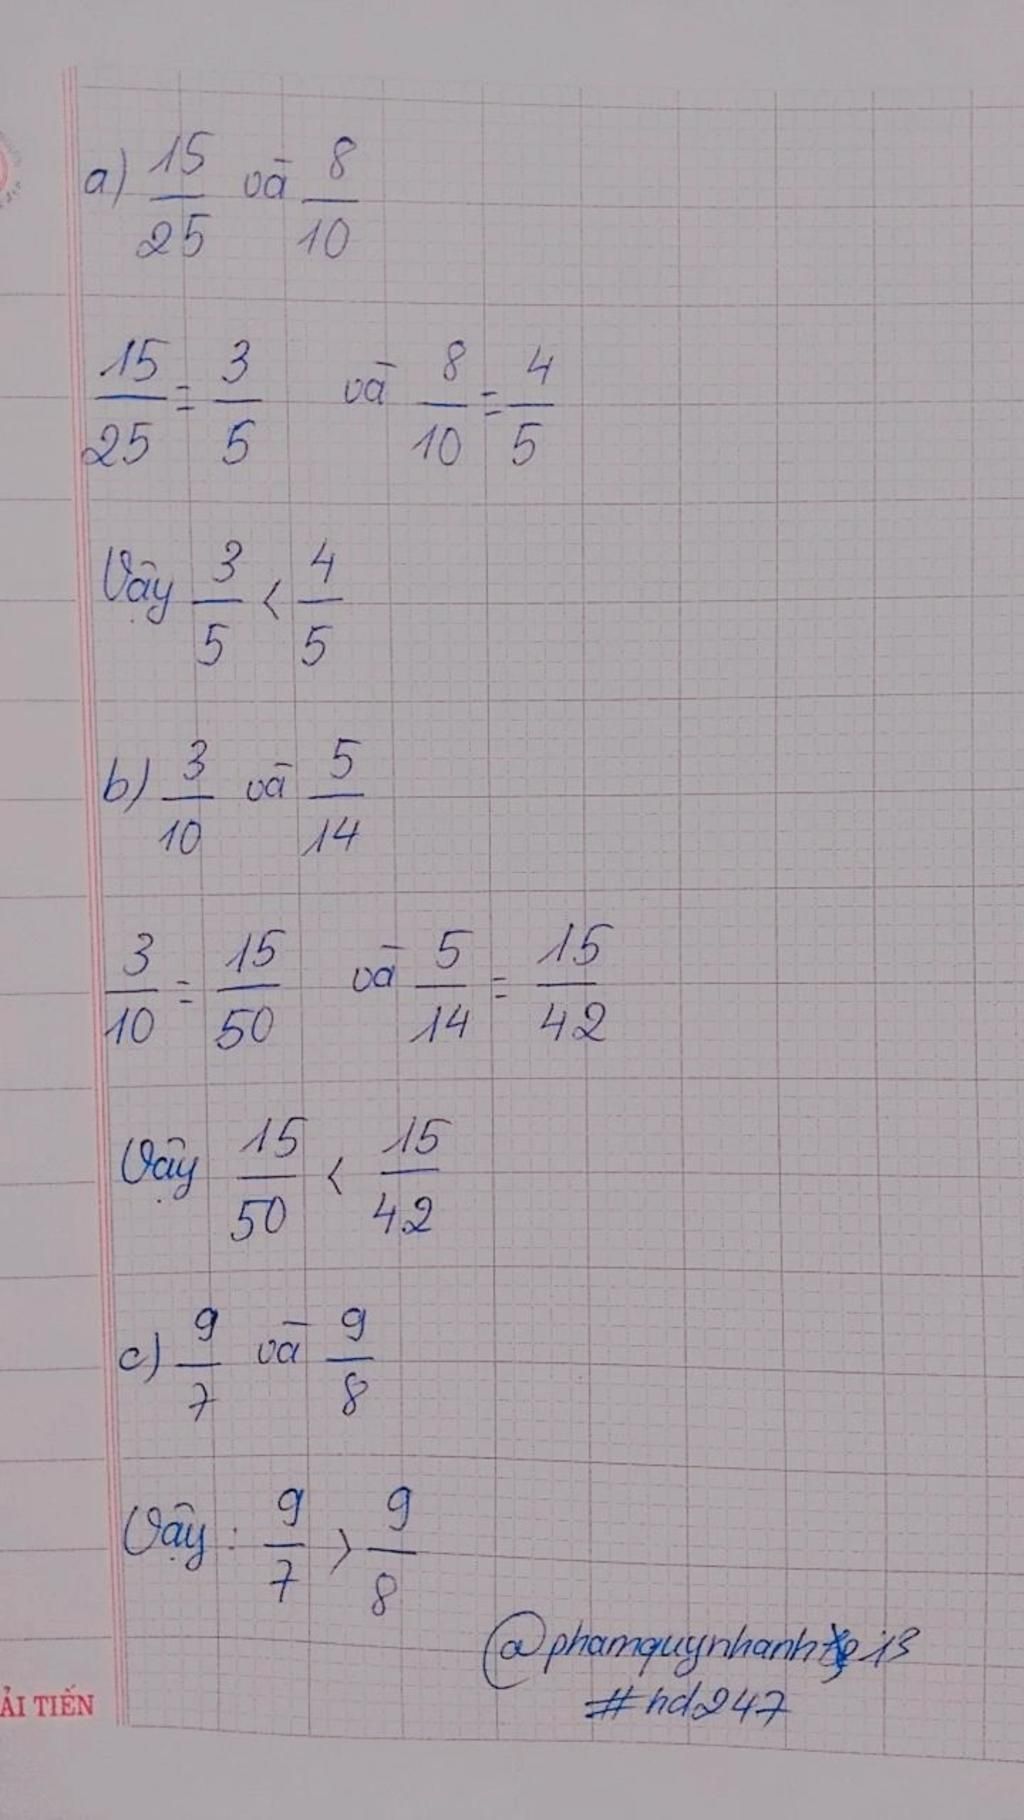 a) 15/25 và 8/10
15/25 = 3/5 và 8/10 = 4/5
Vậy 3/5 < 4/5
b) 3/10 và 5/14
3/10 = 15/50 và 5/14 = 15/42
Vậy 15/50 < 15/42
c) 9/7 và 9/8
Vậy: 9/7 > 9/8
#hd247
ẢI TIẾN